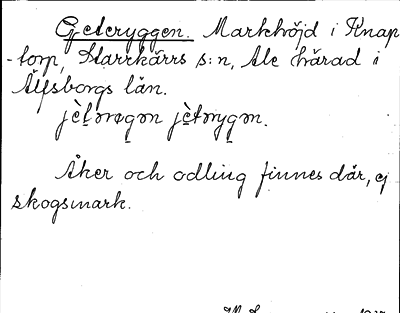 Geteryggen. Markhöjd i Knap
-torp, Starrkärrs s:n, Ale härad i
Älfsborgs län.
Åker och odling finnes där, ej
skogsmark.